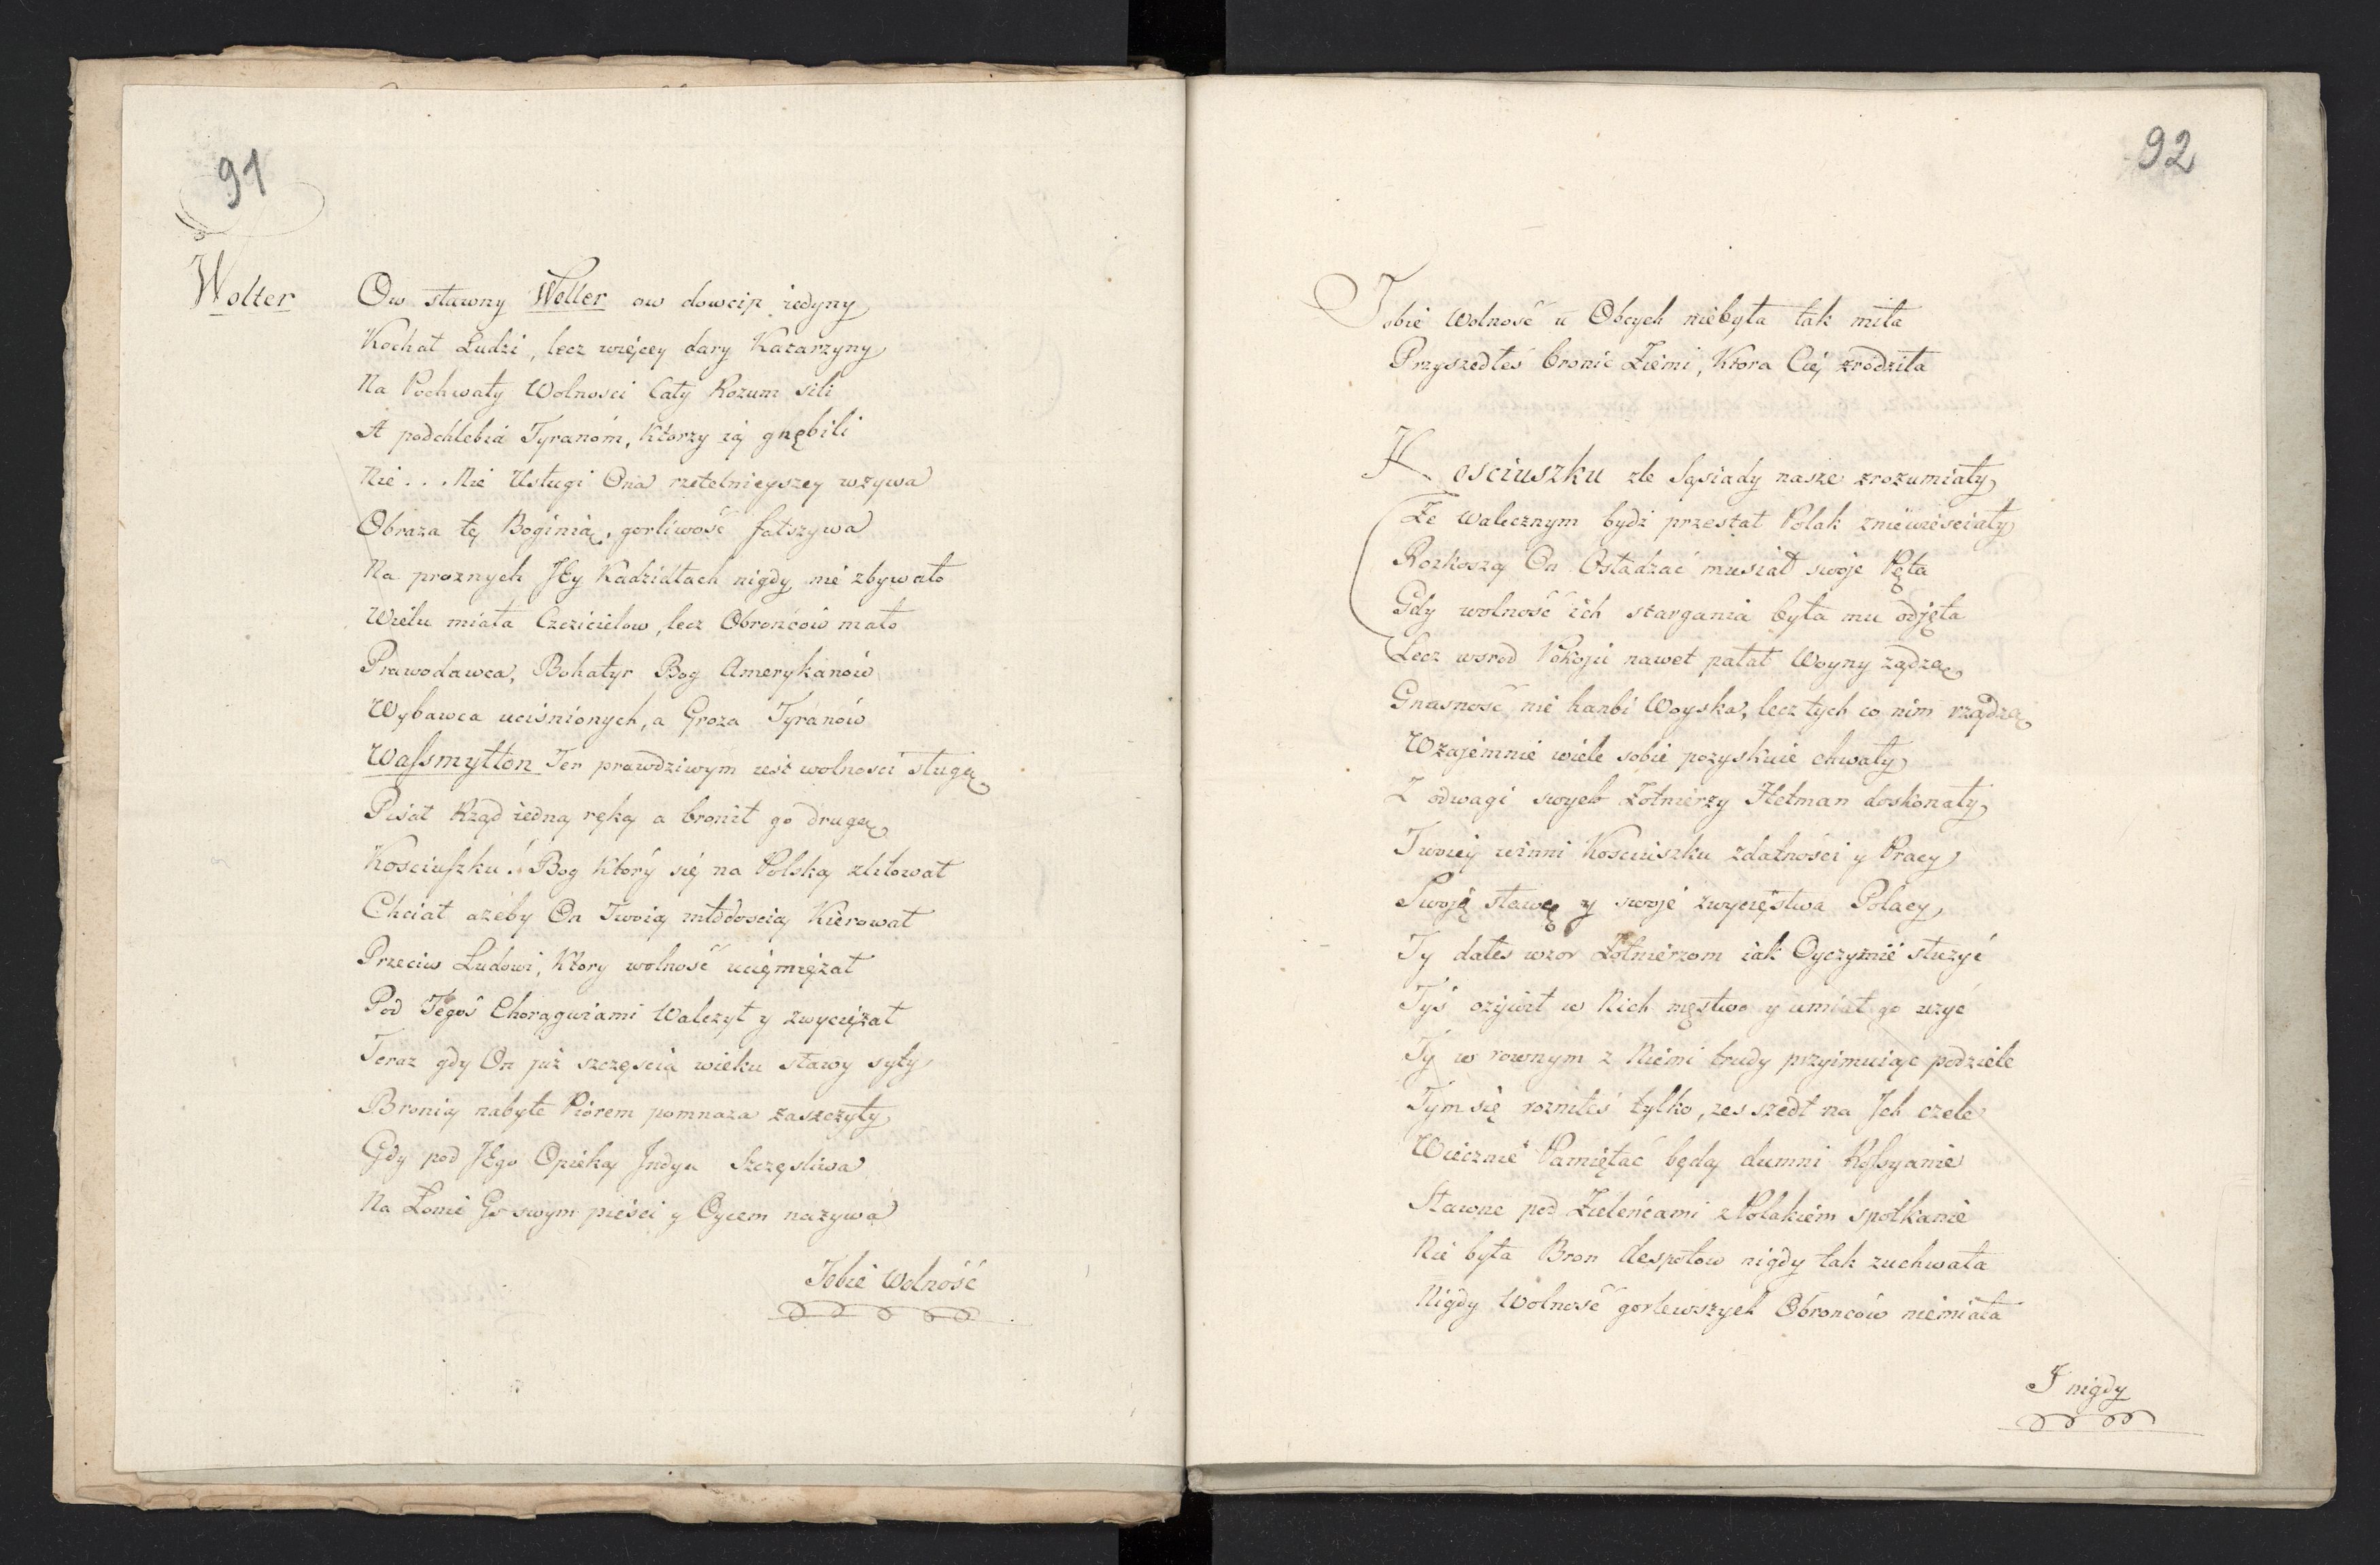 91
Wolter
Ow sławny Wolter ow dowcip iedyny
Kochał Ludzi, lecz więcey dary Katarzyny
Na Pochwały Wolnosci Cały Rozum sili
A podchlebia Tyranóm, Ktorzy ią gnębili
Nie . . . Nie Usługi Ona rzetelnieyszey wzywa
Obraza tę Boginią, gorliwość fałszywa
Na proznych JEy Kadzidłach nigdy nie zbywało
Wielu miała Czcicielow, lecz Obrońców mało
Prawodawca, Bohatyr Bog Amerykanów
Wybawca uciśnionych, a Groza Tyranów
Wassmytton Ten prawdziwym iest wolnosci sługą
Pisał Rząd iedną ręką a bronił go drugą
Kosciuszku! Bog Który się na Polską zlitował
Chciał azeby On Twoią młodoscią Kierował
Przeciw Ludowi, Ktory wolność uciemiężał
Pod Tegoś Chorągwiami Walczył y zwyciężał
Teraz gdy On już szczęscia wieku sławy syty
Bronią nabyte Piórem pomnaza zaszczyty
Gdy pod JEgo Opieką Indya Szczęsliwa
Na Łonie Go swym pieści y Oycem nazywa
Tobie Wolność
92
Tobie Wolność u Obcych niebyła tak miła
Przyszedłeś bronić Ziemi, Ktora Cię zrodziła
Kosciuszku zle Sąsiady nasze zrozumiały
Ze walecznym bydź przestał Polak zniewiesciały
Rozkoszą On Osładzać musiał swoje Pęta
Gdy wolność ich stargania była mu odjęta
Lecz wsrod Pokoju nawet pałał Woyny ządzą
Gnusność nie hanbi Woyska, lecz tych co nim rządzą
Wzajemnie wiele sobie pozyskuie chwały
Z odwagi swych Zołnierzy Hetman doskonały
Twoiey winni Kosciuszku zdatności y Pracy
Swoję sławę y swoje zwycięstwa Polacy,
Ty dałes wzor Zołnierzom iak Oyczyznie służyć
Tyś ożywił w Nich męstwo y umiał go uzyć
Ty w rownym z Niemi trudy przyimuiąc podziele
Tym się rozniłeś tylko, zes szedł na Ich czele
Wiecznie Pamiętać będą dumni Rossyanie
Sławne pod Zieleńcami z Polakiem spotkanie
Nie była Bron despotow nigdy tak zuchwała
Nigdy Wolność gorlewszych Obronców niemiała
I nigdy